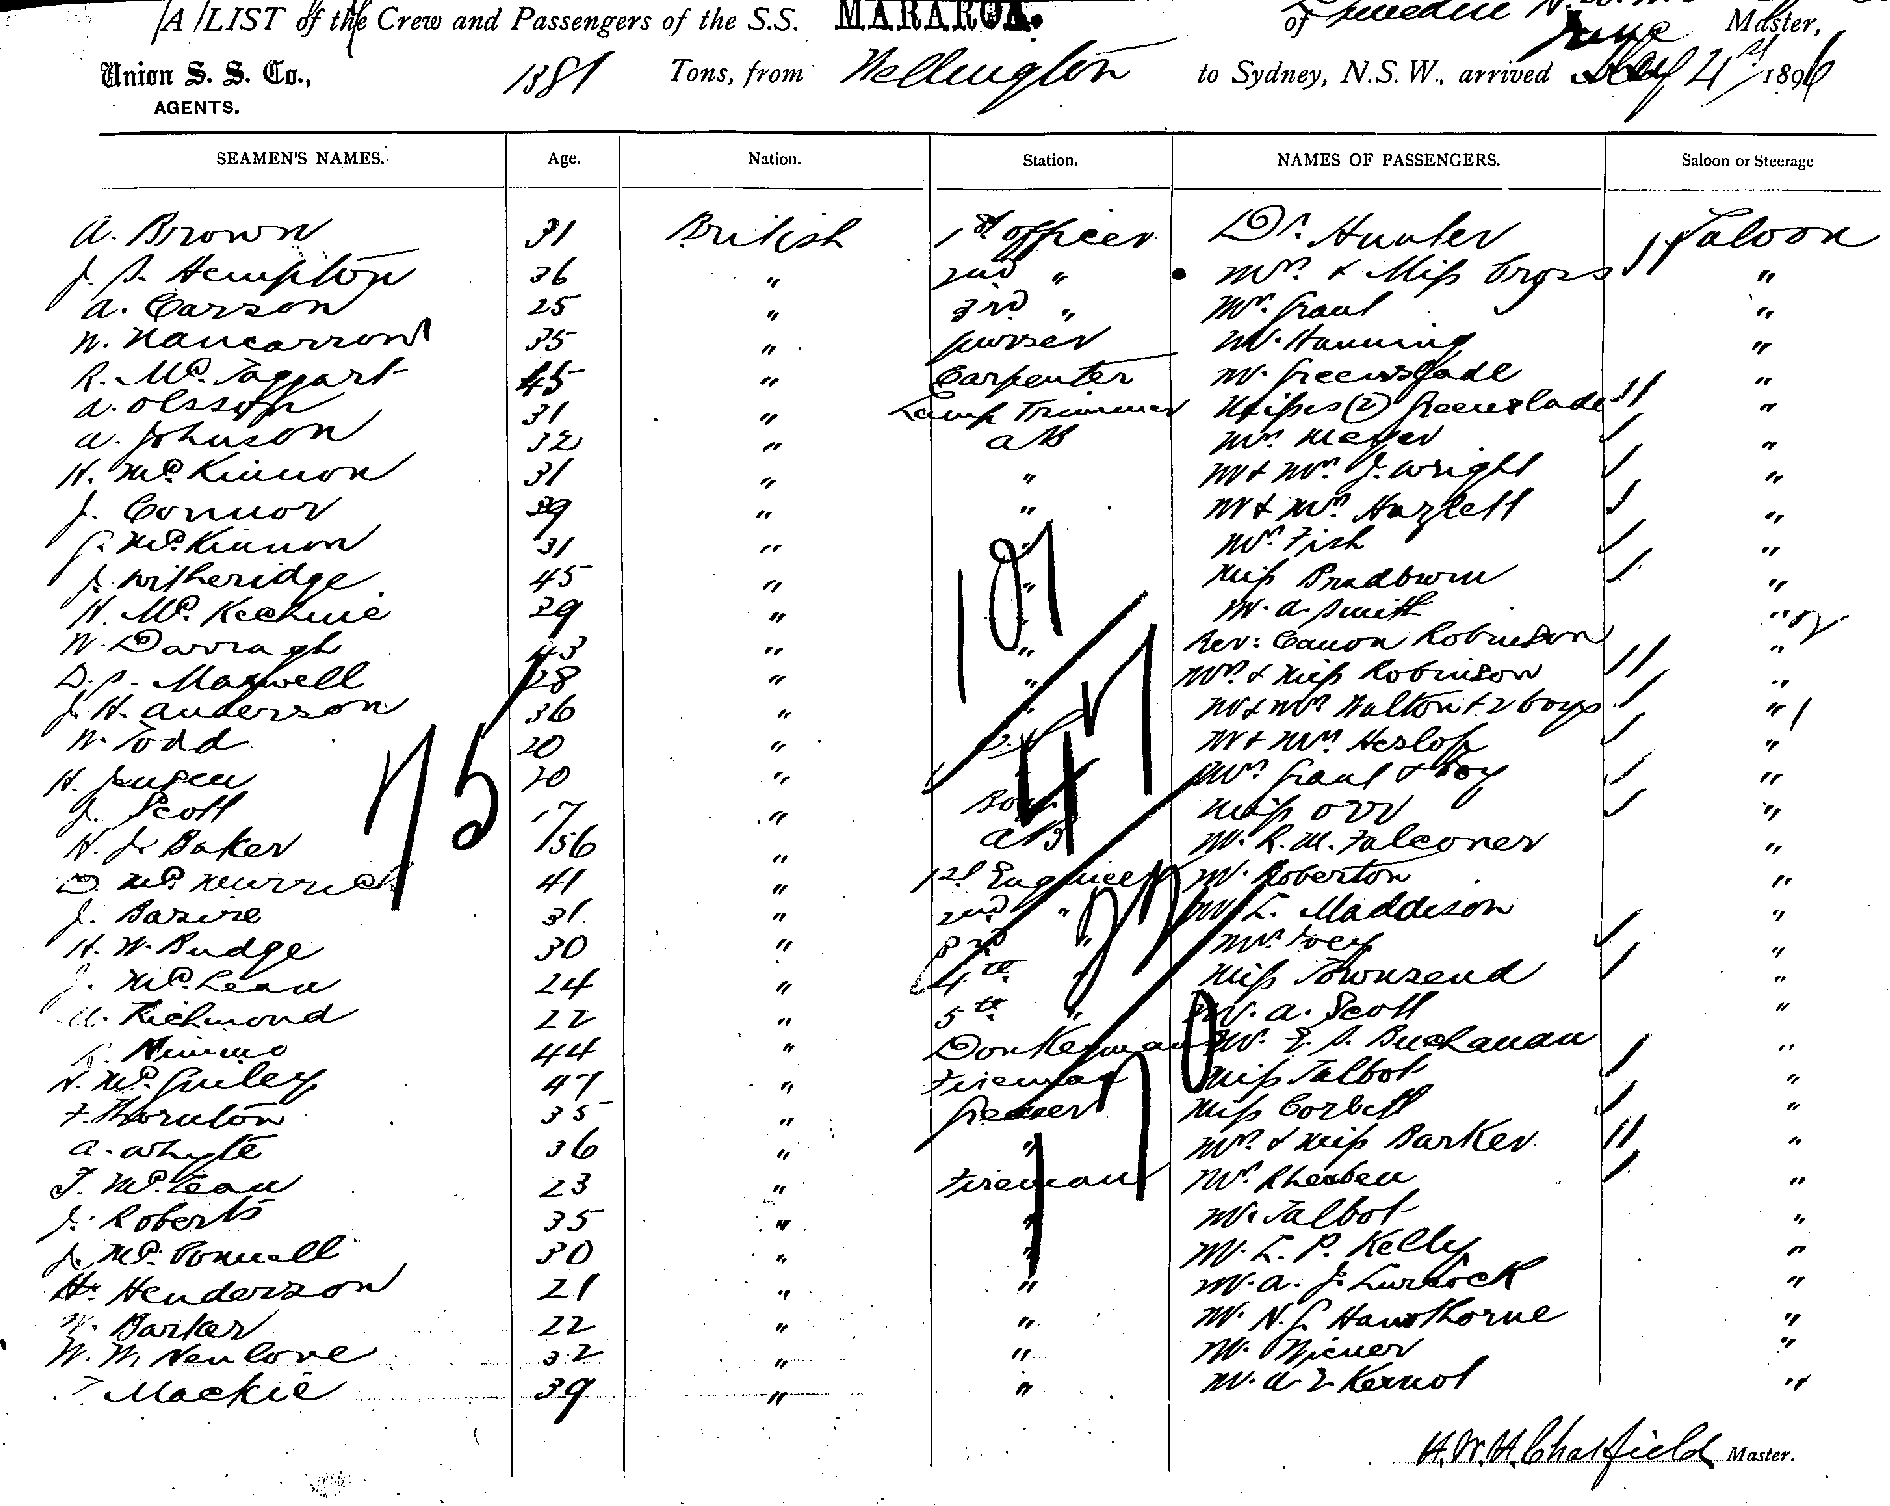 A LIST of the Crew and Passengers of the S.S. MARAROA. of Dunedin Master,
Union S. S. Co., 1381 Tons, from Wellington to Sydney, N.S.W., arrived June 4th 1896
AGENTS.
SEAMEN'S NAMES. Age. Nation. Station. NAMES OF PASSENGERS. Saloon or Steerage
A. Brown 31 British 1st Officer Dr. Hunter Saloon
J. S. Hempton 36 " 2nd " Mrs. & Miss Cross "
A. Carson 25 " 3rd " Mr. Grant "
W. Nancarrow 35 " Purser Mr. Hanning "
R. McTaggart 45 " Carpenter Mr. Greenslade "
A. Olsson 31 " Lamp Trimmer Misses (2) Greenslade "
A. Johnson 32 " AB Mrs. Meyer "
H. McKinnon 31 " " Mr & Mrs. J. Wright "
J. Connor 39 " " Mr & Mrs. Hazlett "
McKinnon 31 " " Mrs. Fish "
J. Witheridge 45 " " Miss Bradburn "
H. McKechnie 29 " " Mr. A. Smith "
W. Darragh 43 " " Rev: Canon Robinson "
D. Maxwell 28 " " Mrs. & Miss Robinson "
J. H. Anderson 36 " " Mr & Mrs Walton & 2 boys "
W. Todd 20 " Mr & Mrs. Heslop "
H. Jensen 20 " Mrs Grant & boy "
J. Scott 17 " Boy Miss Orr "
H. J. Baker 56 " AB Mr. R. M. Falconer "
D. McMurrich 41 " 1st Engineer Mr. Roberton "
J. Basire 31 " 2nd " Mr. L. Maddison "
H. W. Budge 30 " 3rd " Mrs. Foey "
J. McLean 24 " 4th " Miss Townsend "
A. Richmond 22 " 5th " Mr. A. Scott "
Nimmo 44 " Donkeyman Mr. E. S. Buchanan "
N. McGinley 47 " Fireman Miss Talbot "
F. Thornton 35 " Greaser Miss Corbett "
A. Whyte 36 " " Mrs. & Miss Barker "
T. McLean 23 " Fireman Mrs. "
J. Roberts 35 " " Mr. Talbot "
J. McConnell 30 " " Mr. L. P. Kelly "
H. Henderson 21 " " Mr. A. J. Lurcock "
W. Barker 22 " " Mr. N. G. Hawthorne "
W. W. Newlove 32 " " Mr. "
Mackie 39 " " Mr. A E Kernot "
75
107
47
22
70
17
H. W. H. Chatfield Master.